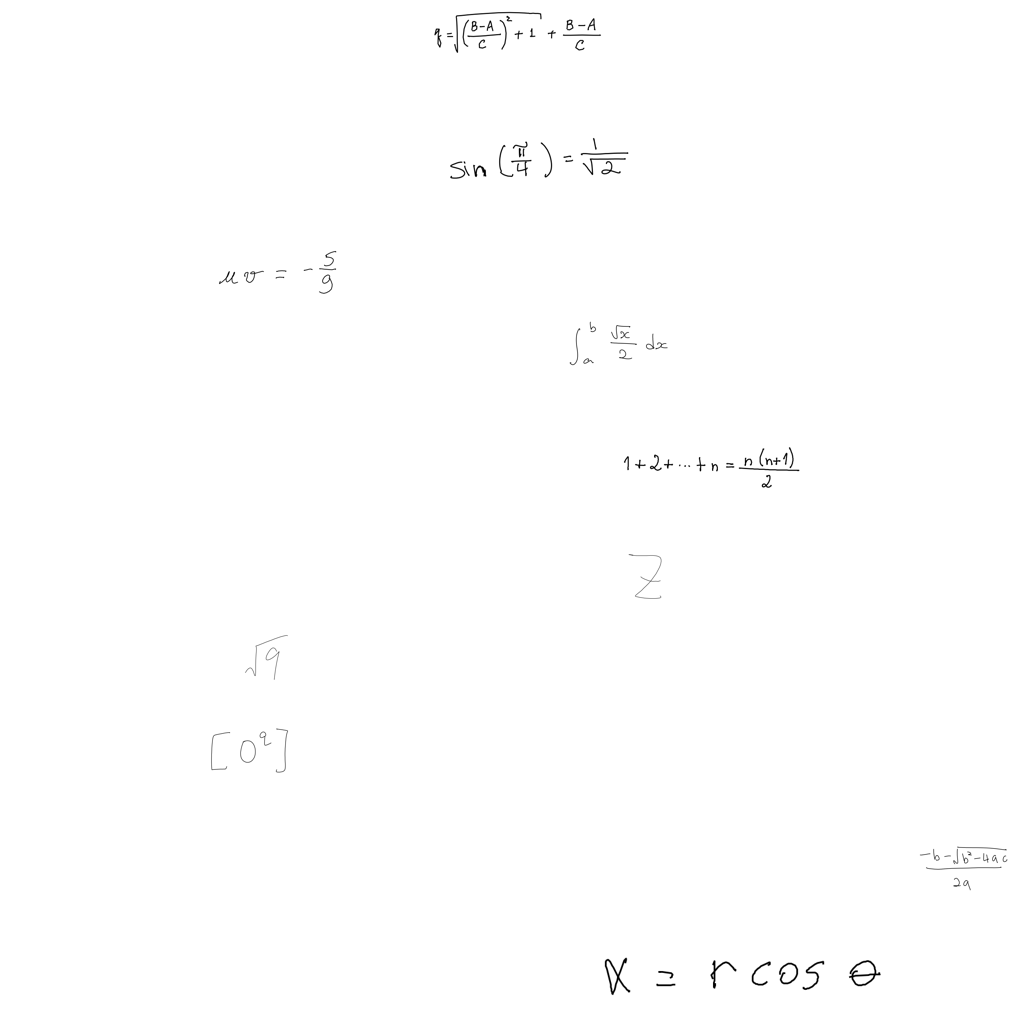 q = \sqrt{\left(\frac{B-A}{C}\right)^2 + 1} + \frac{B-A}{C}
\sin\left(\frac{\pi}{4}\right) = \frac{1}{\sqrt{2}}
\mu v = -\frac{5}{9}
\int_a^b \frac{\sqrt{x}}{2} dx
1 + 2 + \cdots + n = \frac{n(n+1)}{2}
Z
\sqrt{9}
[0^9]
\frac{-b - \sqrt{b^2 - 4ac}}{2a}
x = r \cos \theta